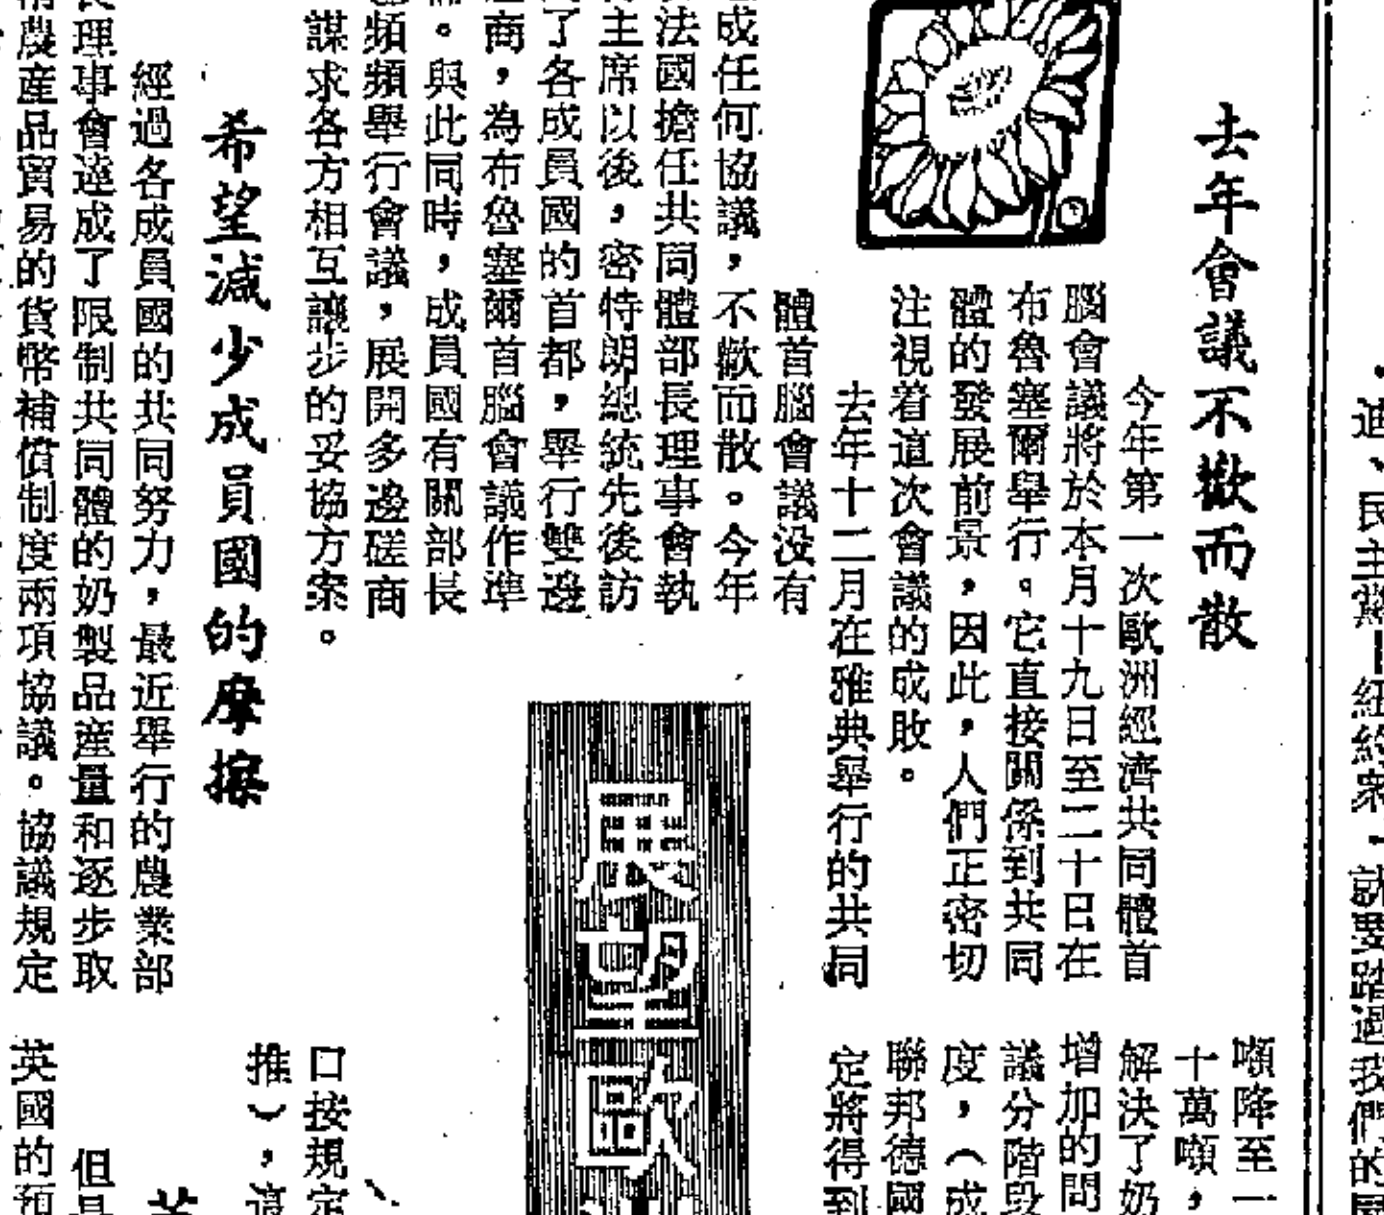 去年會議不歡而散
今年第一次歐洲經濟共同體首
腦會議將於本月十九日至二十日在
布魯塞爾舉行。它直接關係到共同
體的發展前景，因此，人們正密切
注視着這次會議的成敗。
去年十二月在雅典舉行的共同
體首腦會議没有
成任何協議，不歡而散。今年
法國擔任共同體部長理事會執
主席以後，密特朗總統先後訪
了各成員國的首都，舉行雙邊
商，為布魯塞爾首腦會議作準
。與此同時，成員國有關部長
頻頻舉行會議，展開多邊磋商
謀求各方相互讓步的妥協方案。
希望減少成員國的摩擦
經過各成員國的共同努力，最近舉行的農業部
長理事會達成了限制共同體的奶製品産量和逐步取
農産品貿易的貨幣補償制度兩項協議。協議規定
展望歐
噸降至一
十萬噸，
解決了奶
增加的問
議分階段
度，（成
聯邦德國
定將得到
口按規定
推），這
但是
英國的預
迪、民主黨—紐約衆，就要踏過我們的國